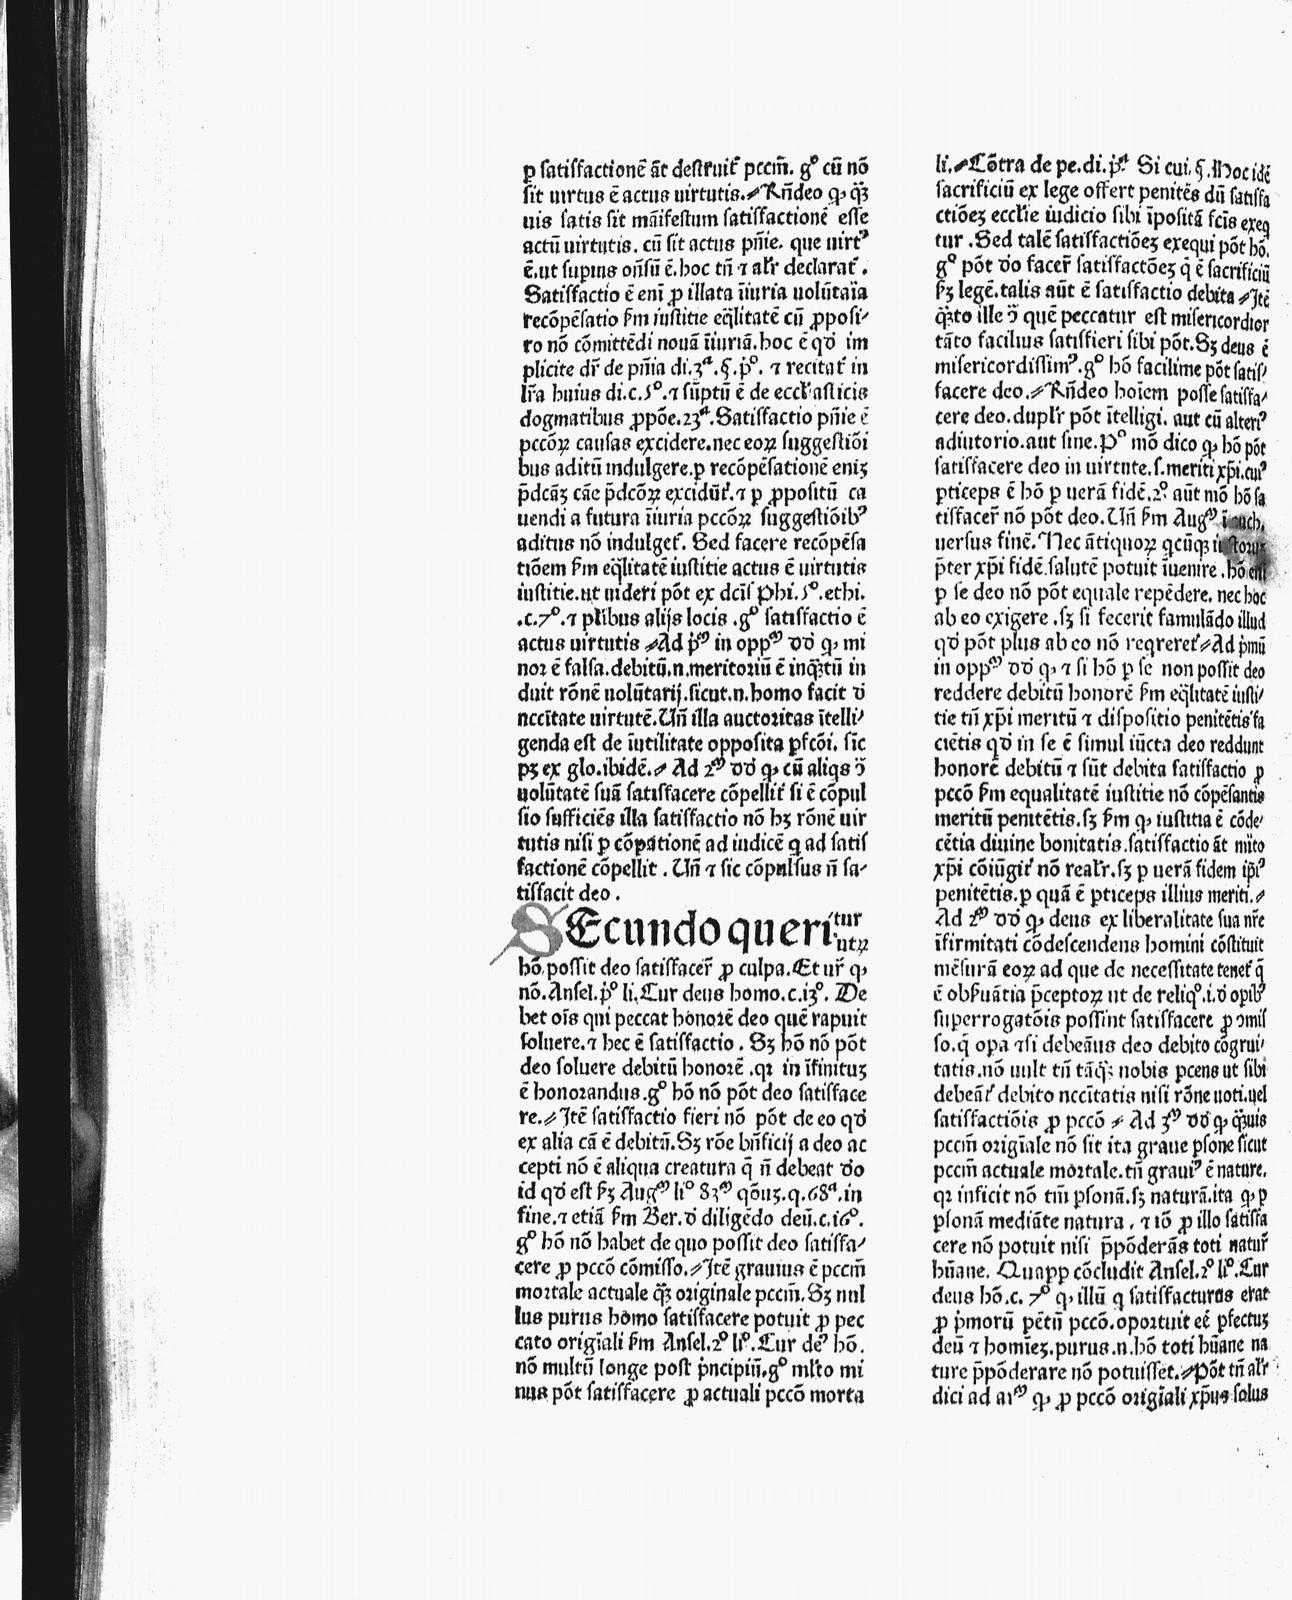 p satisfactionē āt destruit᷑ pccm̄. gº cū nō
sit uirtus ē actus uirtutis. Rn̄deo ꝙ qꝫ
uis satis sit māifestum satisfactionē esse
actū uirtutis. cū sit actus pn̄ie. que uirtꝰ
ē. ut supius on̄sū ē. hoc tn̄ ⁊ alr̄ declarat᷑.
Satisfactio ē eni ꝓ illata iīuria uolūtaīa
recōpēsatio ẜm iustitie eq̄litatē cū ꝓposi⸗
to nō cōmittēdi nouā iīuriā. hoc ē qđ im
plicite dr̄ de pn̄ia di. 3ª. §. pº. ⁊ recitat᷑ in
lr̄a huius di. c. 5º. ⁊ sūptū ē de eccl'asticis
dogmatibus ꝓpōe. 23ª. Satisfactio pn̄ie ē
pccōꝝ causas excidere. nec eoꝝ suggestiōi
bus aditū indulgere. p recōpēsationē eniꝫ
p̄dcāꝫ cāe p̄dcōꝝ excidūt᷑. ⁊ p ꝓpositū ca
uendi a futura iīuria pccōꝝ suggestiōibꝰ
aditus nō indulget᷑. Sed facere recōpēsa
tiōem ẜm eq̄litatē iustitie actus ē uirtutis
iustitie. ut uideri pōt ex dcīs Phi. 5º. ethi.
.c. 7º. ⁊ pl̄ibus alijs locis. gº satisfactio ē
actus uirtutis Ad pᵐ in oppᵐ dđ ꝙ mi
nor ē falsa. debitū. n. meritoriū ē inqꝫtū in
duit rōnē uolūtarij. sicut. n. homo facit đ
nccītate uirtutē. Un̄ illa auctoritas ītelli⸗
genda est de iūtilitate opposita ꝑfcōi. sīc
pꝫ ex glo. ibidē. Ad 2ᵐ dđ ꝙ cū aliqs ꝯ̄
uolūtatē suā satisfacere cōpellit᷑ si ē cōpul
sio sufficiēs illa satisfactio nō hꝫ rōnē uir
tutis nisi p cōpationē ad iudicē q ad satis
factionē cōpellit. Un̄ ⁊ sic cōpulsus n̄ sa⸗
tisfacit deo.
SEcundo queritur
utꝝ
hō possit deo satisfacer̄ ꝓ culpa. Et ur̄ ꝙ
nō. Ansel. pº li. Cur deus homo. c. i3º. De
bet oīs qui peccat honorē deo quē rapuit
soluere. ⁊ hec ē satisfactio. Sꝫ hō nō pōt
deo soluere debitū honorē. qꝛ in īfinituꝫ
ē honorandus. gº hō nō pōt deo satisface
re. Itē satisfactio fieri nō pōt de eo qđ
ex alia cā ē debitū. Sꝫ rōe bn̄ficij a deo ac
cepti nō ē aliqua creatura q̄ n̄ debeat đo
id qđ est ẜꝫ Augᵐ liº 83ᵐ qōnuꝫ. q. 68ª. in
fine. ⁊ etiā ẜm Ber. đ diligēdo deū. c. i6º.
gº hō nō habet de quo possit deo satisfa⸗
cere ꝓ pccō cōmisso. Itē grauius ē pccm̄
mortale actuale qꝫ originale pccm̄. Sꝫ nul
lus purus homo satisfacere potuit ꝓ pec
cato origīali ẜm Ansel. 2º liº. Cur deꝰ hō.
nō multū longe post pⁱncipiū. gº ml̄to mi
nus pōt satisfacere ꝓ actuali pccō morta
li. Cōtra de pe. di. pª. Si cui. §. Hoc idē
sacrificiū ex lege offert penitēs dū satisfa
ctiōeꝫ eccl̄ie iudicio sibi īpositā fcīs exeq
tur. Sed talē satisfactiōeꝫ exequi pōt hō.
gº pōt đo facer̄ satisfactōeꝫ q̄ ē sacrificiū
ẜꝫ legē. talis aūt ē satisfactio debita Itē
qꝫto ille ꝯ̄ quē peccatur est misericordior
tāto facilius satisfieri sibi pōt. Sꝫ deus ē
misericordissimꝰ. gº hō facilime pōt satis⸗
facere deo. Rn̄deo hoīem posse satisfa⸗
cere deo. duplr̄ pōt ītelligi. aut cū alteriꝰ
adiutorio. aut sine. Pº mō dico ꝙ hō pōt
satisfacere deo in uirtute. s. meriti xp̄i. cuiꝰ
pticeps ē hō p uerā fidē. 2º aūt mō hō sa
tisfacer̄ nō pōt deo. Un̄ ẜm Augᵐ ī ench.
uersus finē. Nec ātiquoꝝ qcūqꝫ iustorum
p̄ter xp̄i fidē salutē potuit īuenire. hō eni
p se deo nō pōt equale repēdere. nec hoc
ab eo exigere. sꝫ si fecerit famulādo illud
qđ pōt plus ab eo nō reqreret᷑ Ad pⁱmū
in oppᵐ dđ ꝙ ⁊ si hō p se non possit deo
reddere debitū honorē ẜm eq̄litatē iusti⸗
tie tn̄ xp̄i meritū ⁊ dispositio penitētis fa
ciētis qđ in se ē simul iūcta deo reddunt
honorē debitū ⁊ sūt debita satisfactio ꝓ
pccō ẜm equalitatē iustitie nō cōpēsantis
meritū penitētis. sꝫ ẜm ꝙ iustitia ē cōde⸗
cētia diuine bonitatis. satisfactio āt mīto
xp̄i cōiūgit᷑ nō realr̄. sꝫ p uerā fidem ip̄iꝰ
penitētis. p quā ē pticeps illius meriti.
Ad 2ᵐ dđ ꝙ deus ex liberalitate sua nr̄e
īfirmitati cōdescendens homini cōstituit
mēsurā eoꝝ ad que de necessitate tenet᷑ q̄
ē obẜuātia p̄ceptoꝝ ut de reliqº. i. đ opibꝰ
superrogatōis possint satisfacere ꝓ ꝯmis
so. q̄ opa ⁊si debeāus deo debito cōgrui⸗
tatis. nō uult tn̄ tāqꝫ nobis pcens ut sibi
debeāt᷑ debito nccītatis nisi rōne uoti. uel
satisfactiōis ꝓ pccō Ad 3ᵐ dđ ꝙ qꝫuis
pccm̄ origīale nō sit ita graue psone sicut
pccm̄ actuale mortale. tn̄ grauiꝰ ē nature.
qꝛ inficit nō tm̄ psonā. sꝫ naturā. ita ꝙ p
psonā mediāte natura. ⁊ iō ꝓ illo satisfa
cere nō potuit nisi p̄pōderās toti natur̄
hūane. Quapp cōcludit Ansel. 2º liº. Cur
deus hō. c. 7º ꝙ illū q satisfacturus erat
ꝓ pⁱmorū pētū pccō. oportuit eē pfectuꝫ
deū ⁊ homīeꝫ. purus. n. hō toti hūane na
ture p̄pōderare nō potuisset. Pōt tn̄ alr̄
dici ad arᵐ ꝙ ꝓ pccō origīali xp̄us solus